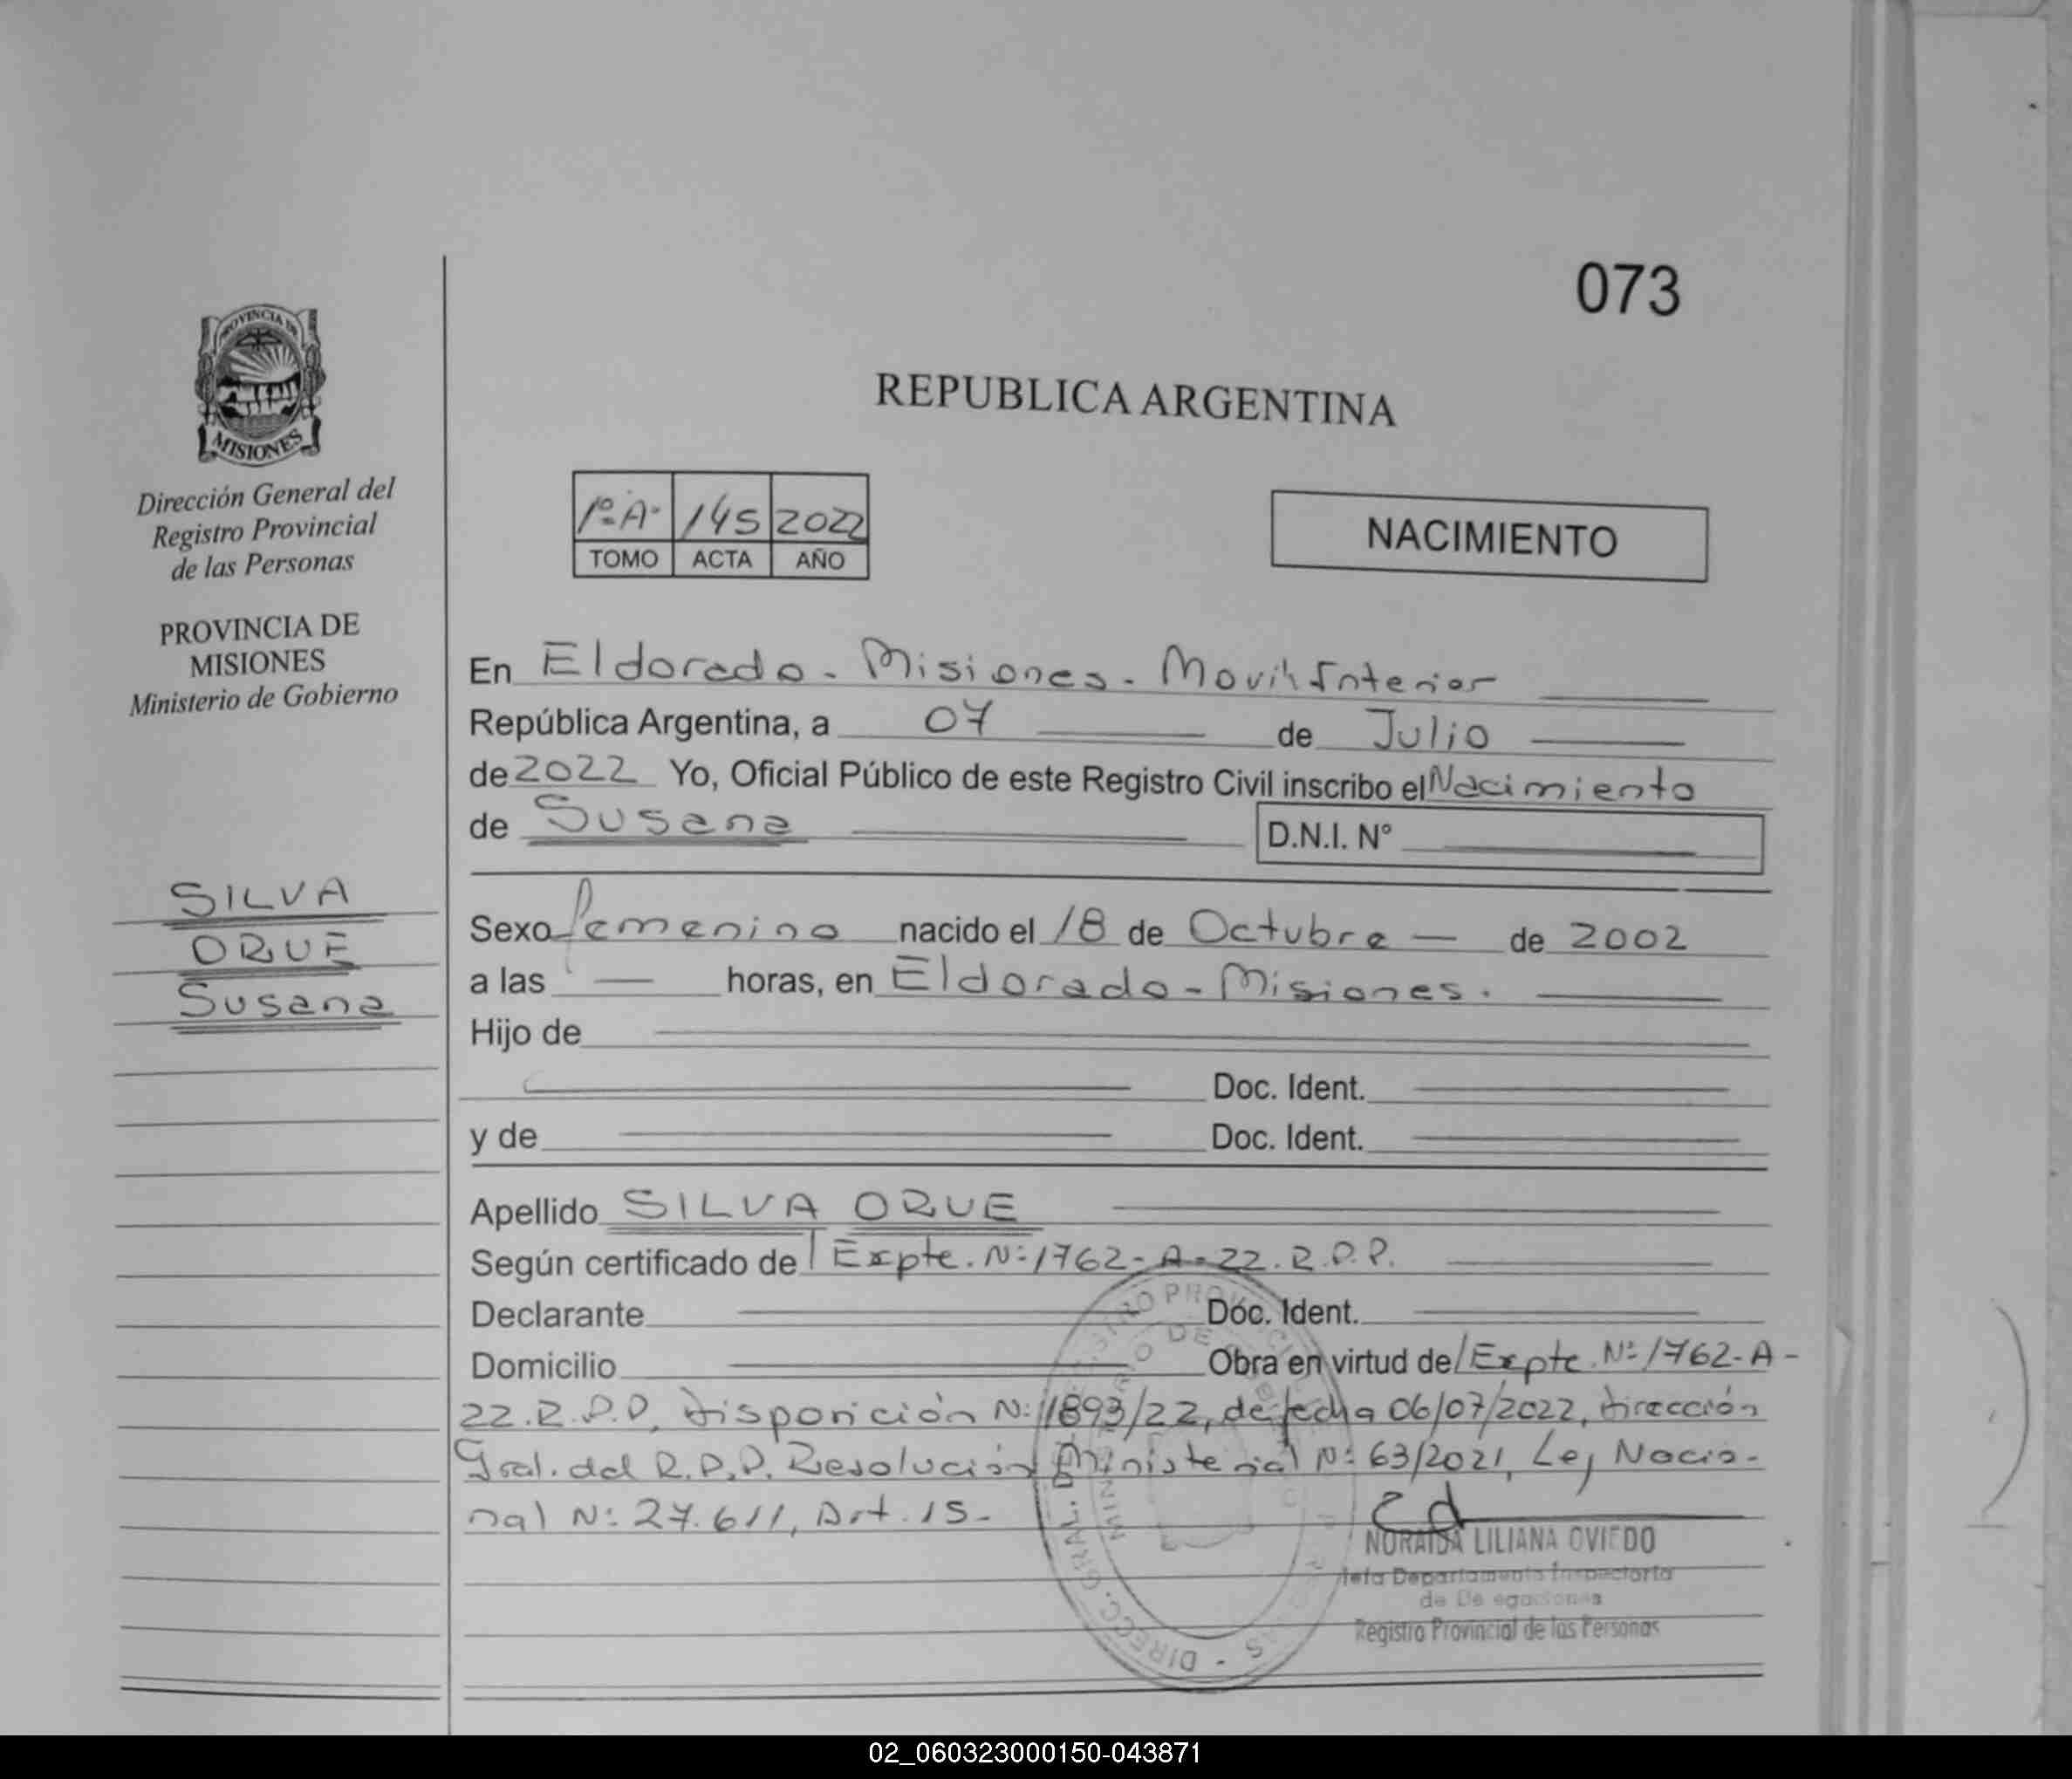 073
PROVINCIA DE
MISIONES
Dirección General del
Registro Provincial
de las Personas
PROVINCIA DE
MISIONES
Ministerio de Gobierno
SILVA
ORUE
Susana
REPUBLICA ARGENTINA
1º A- 145 2022
TOMO ACTA AÑO
NACIMIENTO
En Eldorado - Misiones - Movil Interior
República Argentina, a 07 de Julio
de 2022 Yo, Oficial Público de este Registro Civil inscribo el Nacimiento
de Susana D.N.I. N°
Sexo femenino nacido el 18 de Octubre — de 2002
a las — horas, en Eldorado - Misiones.
Hijo de
Doc. Ident.
y de Doc. Ident.
Apellido SILVA ORUE
Según certificado de/ Expte. N:1762-A-22. R.P.P.
Declarante Doc. Ident.
Domicilio Obra en virtud de/Expte. Nº 1762-A-
22.R.P.P, Disposición N:1893/22, de fecha 06/07/2022, Dirección
Gral. del R.P.P. Resolución Ministerial Nº 63/2021, Ley Nacio-
nal N: 27.611, Art. 15-
NORAIDA LILIANA OVIEDO
Jefa Departamento Inspectoría
de Delegaciones
Registro Provincial de las Personas
02_060323000150-043871